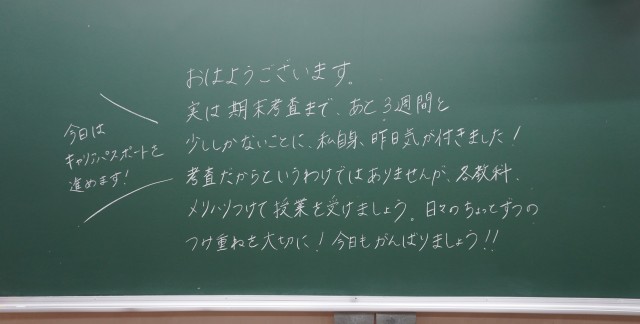 おはようございます。
実は期末考査まで、あと3週間と
少ししかないことに、私自身、昨日気が付きました！
考査だからというわけではありませんが、各教科、
メリハリつけて授業を受けましょう。日々のちょっとずつの
つけ重ねを大切に！今日もがんばりましょう！！
今日は
キャリアパスポートを
進めます！